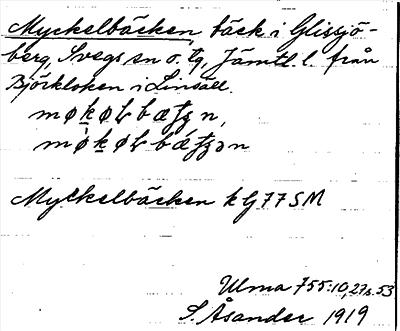 Myckelbäcken, bäck i Glissjö-
berg, Svegs sn o. tg, Jämtl. l. från
Björkloken i Linsäll.
Myckelbäcken k G 77 SM
Ulma 755:10, 27 s. 53
S. Åsander 1919